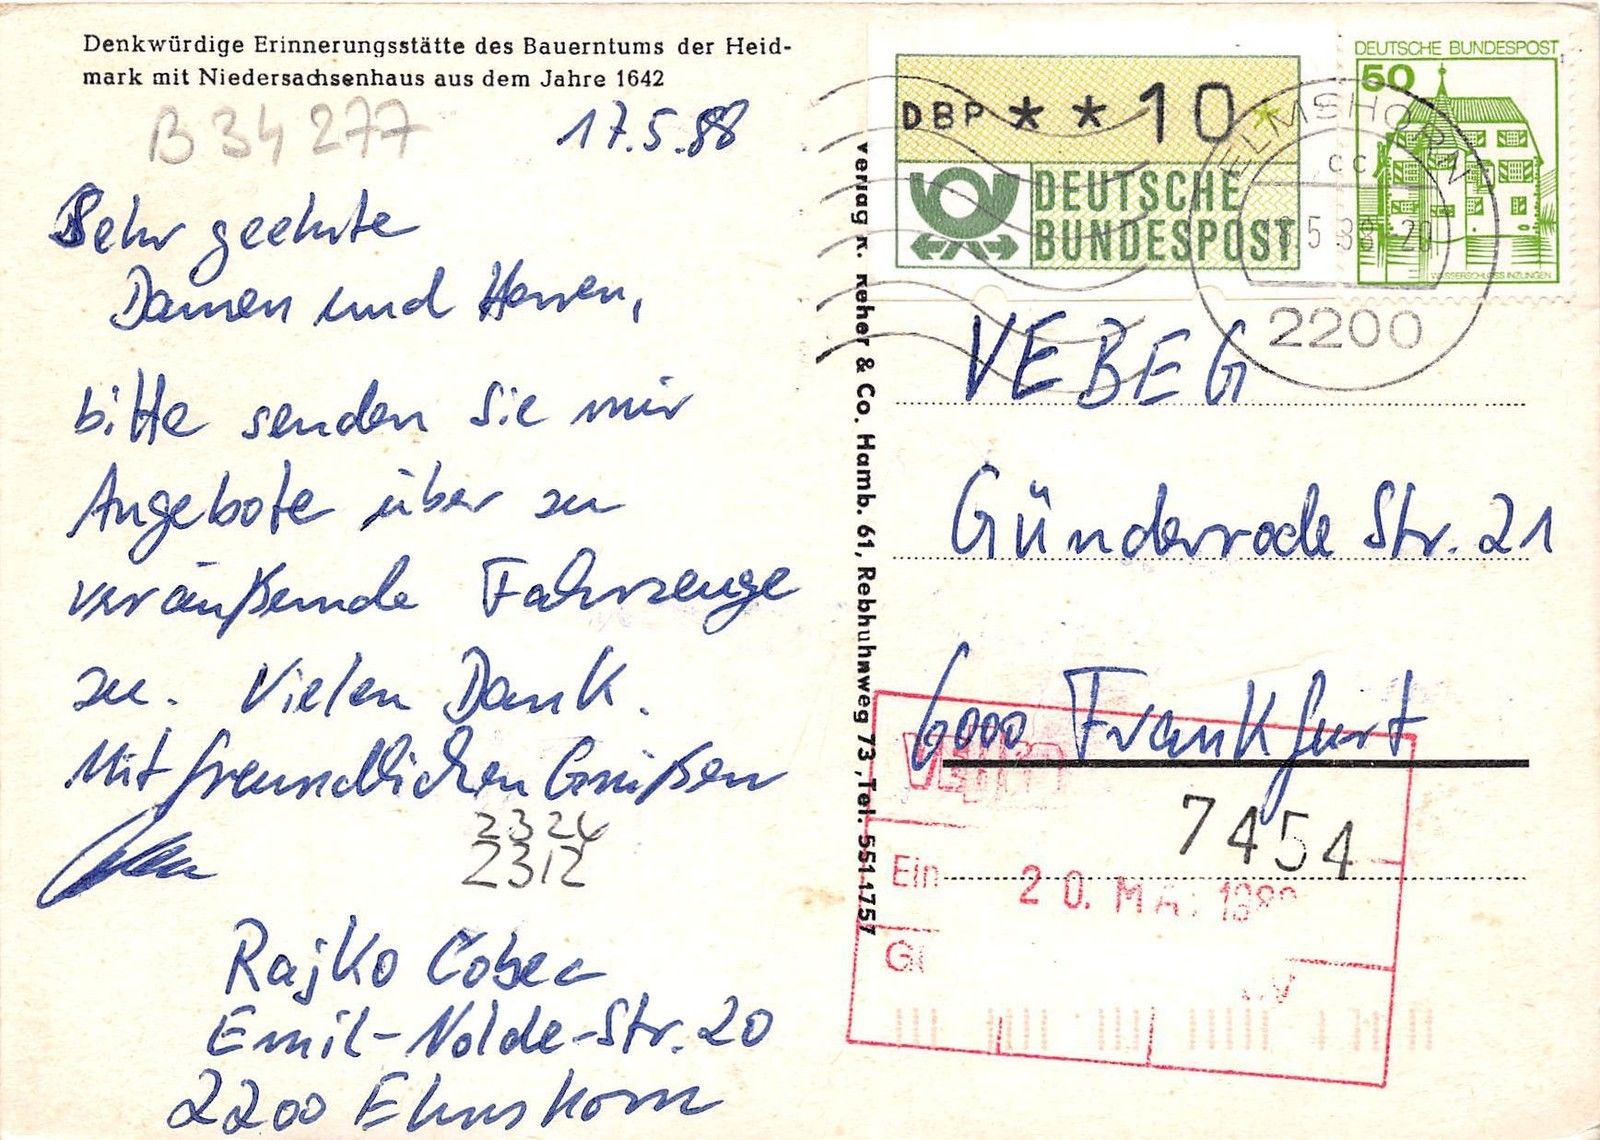 Denkwürdige Erinnerungsstätte des Bauerntums der Heid-
mark mit Niedersachsenhaus aus dem Jahre 1642
B 34 277
17.5.88
Sehr geehrte
Damen und Herren,
bitte senden Sie mir
Angebote über zu
veräußernde Fahrzeuge
zu. Vielen Dank.
Mit freundlichen Grüßen
2324
2312
Rajko Cobec
Emil-Nolde-Str. 20
2200 Elmshorn
Verlag K. Reher & Co. Hamb. 61, Rebhuhnweg 73, Tel. 5511757
DBP **10*
DEUTSCHE
BUNDESPOST
DEUTSCHE BUNDESPOST
50
WASSERSCHLOSS INZLINGEN
ELMSHORN
cc
5.88-20
2200
VEBEG
Günderrode Str. 21
6000 Frankfurt
7454
Ein
20. MAI 1988